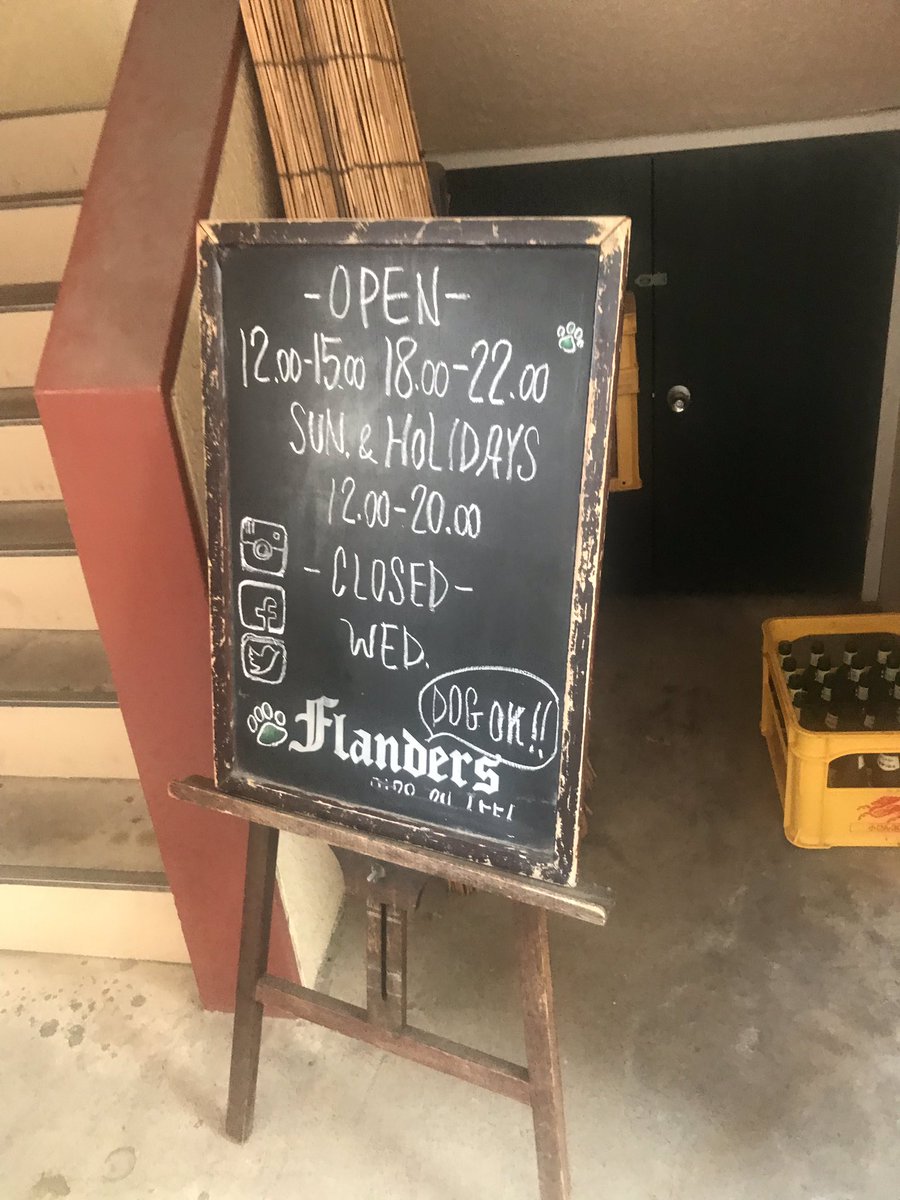 -OPEN-
12.00-15.00 18.00-22.00
SUN. & HOLIDAYS
12.00-20.00
-CLOSED-
WED.
DOG OK!!
Flanders